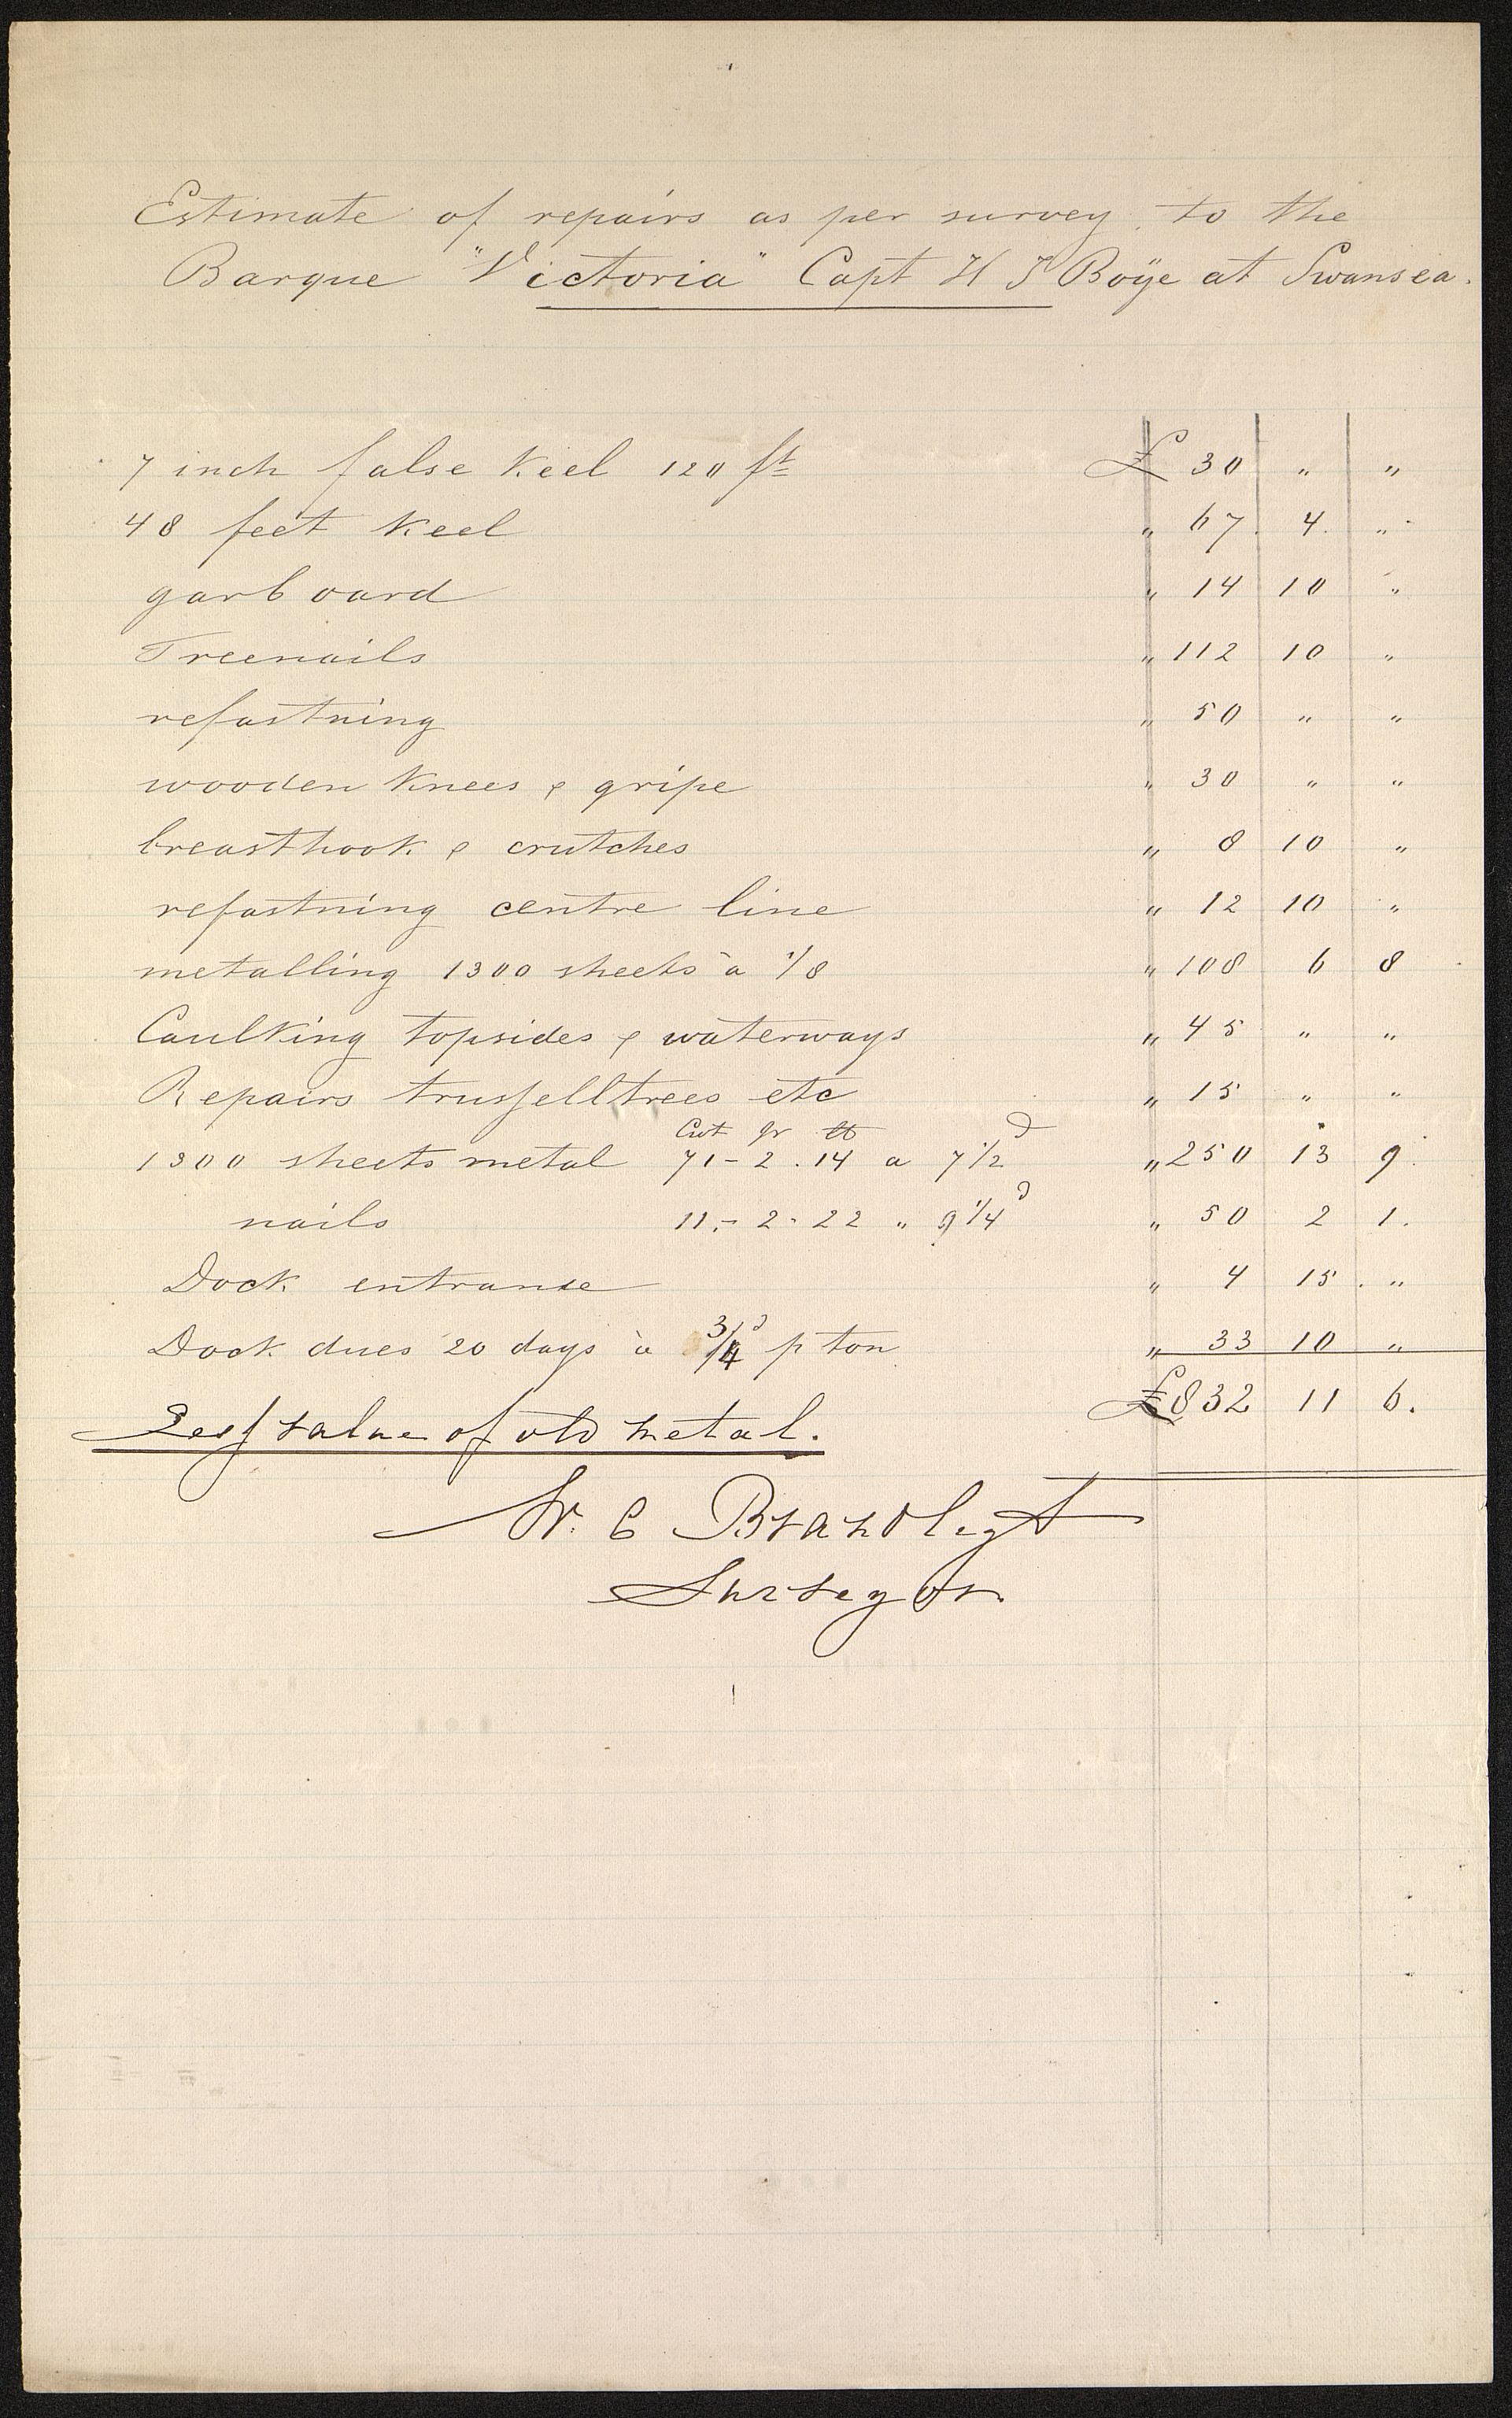 Estimate of repairs as per survey, to the
Barque "Victoria" Capt H J Boÿe at Swansea.
7 inch false keel 120 ft £ 30 " "
48 feet keel " 67. 4. "
garboard " 14 10 "
Treenails " 112 10 "
refastning " 50 " "
wooden knees & gripe " 30 " "
breasthook & crutches " 8 10 "
refastning centre line " 12 10 "
metalling 1300 sheets à 1/8 " 108 6 8
Caulking topsides & waterways " 45 " "
Repairs trusselltrees etc " 15 " "
Cwt qr lb d
1300 sheets metal 71-2.14 a 7 1/2 " 250 13 9
nails 11.-2-22 " 9 1/4 d " 50 2 1.
Dock entranse " 4 15. "
Dock dues 20 days à 3/4 d p ton " 33 10 "
£832 11 6.
Less value of old metal.
W. C
Surveyor.